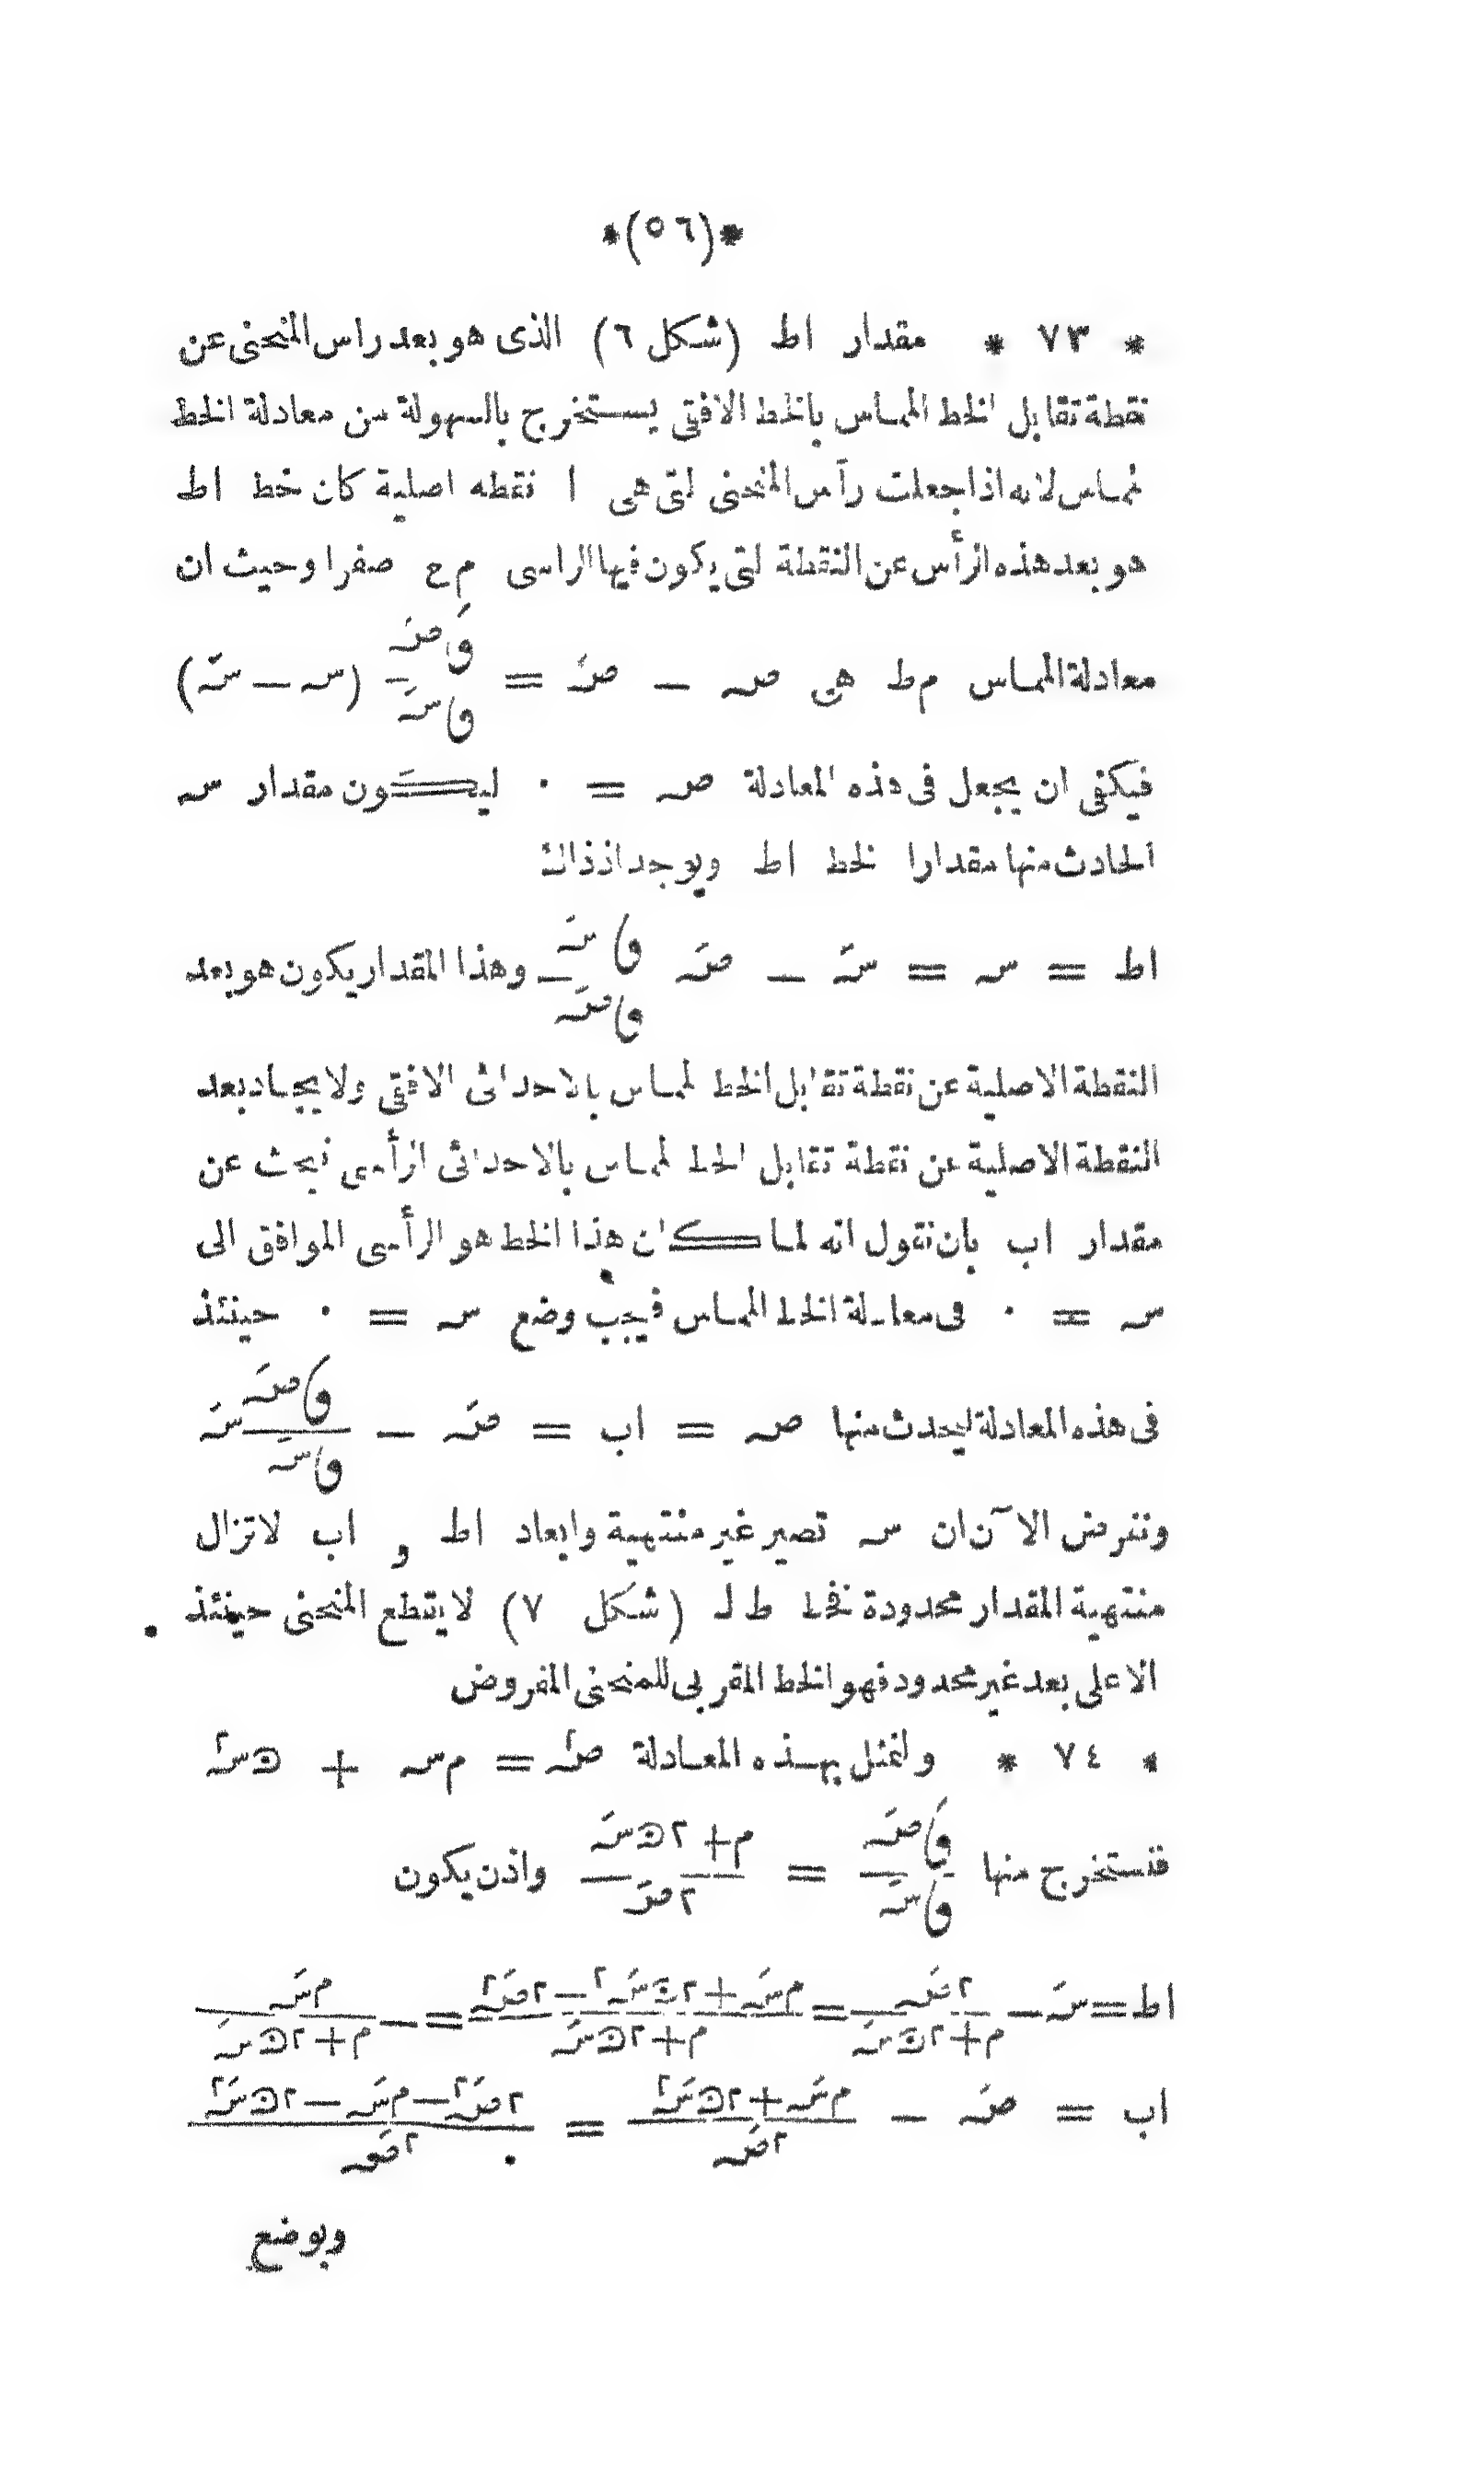 *(٥٦)*
* ٧٣ * مقدار اط (شكل ٦) الذى هو بعد راس المنحنى عن
نقطة تقابل الخط المماس بالخط الافقى يستخرج بالسهولة من معادلة الخط
المماس لانه اذا جعلت رأس المنحنى التى هى ا نقطه اصلية كان خط اط
هو بعد هذه الرأس عن النقطة التى يكون فيها الراسى م ع صفرا وحيث ان
معادلة المماس م ط هى صہ — صہَ = وصہَ / وسہَ (سہ — سہَ)
فيكفى ان يجعل فى هذه المعادلة صہ = ٠ ليكون مقدار سہ
الحادث منها مقدارا لخط اط ويوجد اذ ذاك
اط = سہ = سہَ — صہَ وسہَ / وصہَ وهذا المقدار يكون هو بعد
النقطة الاصلية عن نقطة تقابل الخط المماس بالاحداثى الافقى ولايجاد بعد
النقطة الاصلية عن نقطة تقابل الخط المماس بالاحداثى الرأسى نبحث عن
مقدار اب بأن نقول انه لما كان هذا الخط هو الرأسى الموافق الى
سہ = ٠ فى معادلة الخط المماس فيجب وضع سہ = ٠ حينئذ
فى هذه المعادلة ليحدث منها صہ = اب = صہَ — وصہَ / وسہَ سہَ
ونفرض الآن ان سہ تصير غير منتهية وابعاد اط و اب لا تزال
منتهية المقدار محدودة فخط ط لـ (شكل ٧) لا يقطع المنحنى حينئذ
الاعلى بعد غير محدود فهو الخط المقربى للمنحنى المفروض
* ٧٤ * ولنمثل بهذه المعادلة صہ٢ = م سہ + ﻫ سہ٢
فنستخرج منها وصہَ / وسہَ = م + ٢ﻫ سہَ / ٢صہَ واذن يكون
اط = سہَ — ٢صہَ٢ / م + ٢ﻫ سہَ = م سہَ + ٢ﻫ سہَ٢ — ٢صہَ٢ / م + ٢ﻫ سہَ = — م سہَ / م + ٢ﻫ سہَ
اب = صہَ — م سہَ + ٢ﻫ سہَ٢ / ٢صہَ = ٢صہَ٢ — م سہَ — ٢ﻫ سہَ٢ / ٢صہَ
وبوضع